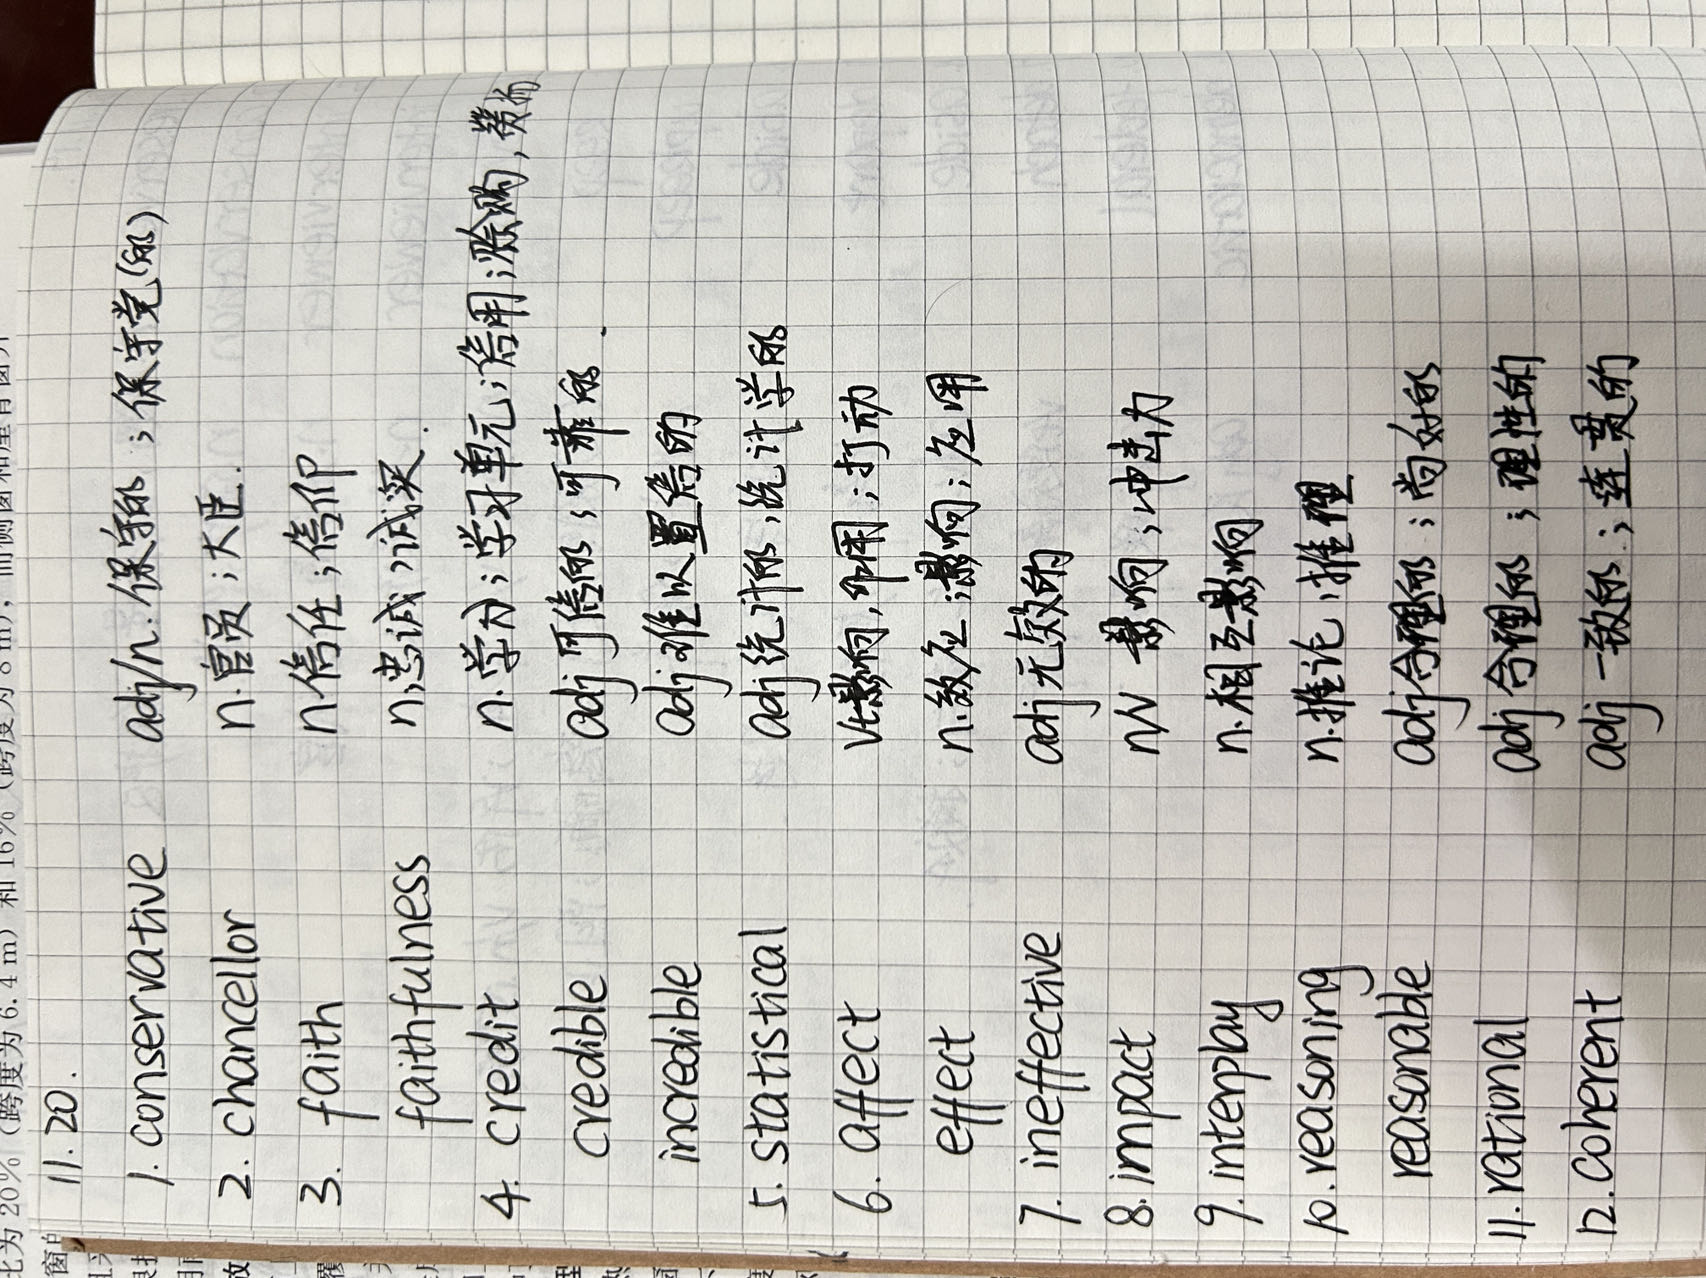 11.20.
1. conservative adj/n. 保守的；保守党(的)
2. chancellor n. 官员；大臣.
3. faith n. 信任；信仰
faithfulness n. 忠诚；诚实.
4. credit n. 学分；学习单元；信用；赊购，赞扬
credible adj 可信的；可靠的.
incredible adj 难以置信的
5. statistical adj 统计的；统计学的
6. affect vt. 影响，作用；打动
effect n. 效应；影响；应用
7. ineffective adj 无效的
8. impact n/v 影响；冲击力
9. interplay n. 相互影响
10. reasoning n. 推论；推理
reasonable adj 合理的；尚好的
11. rational adj 合理的；理性的
12. coherent adj 一致的；连贯的
比为 20%(跨度为 6.4 m) 和 16%(跨度为 8 m)，而侧窗和崖